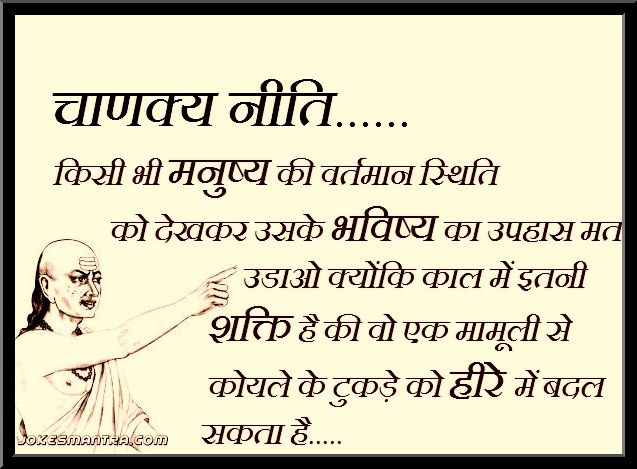 चाणक्य नीति......
किसी भी मनुष्य की वर्तमान स्थिति
को देखकर उसके भविष्य का उपहास मत
उडाओ क्योंकि काल में इतनी
शक्ति है की वो एक मामूली से
कोयले के टुकड़े को हीरे में बदल
सकता है.....
JOKESMANTRA.COM